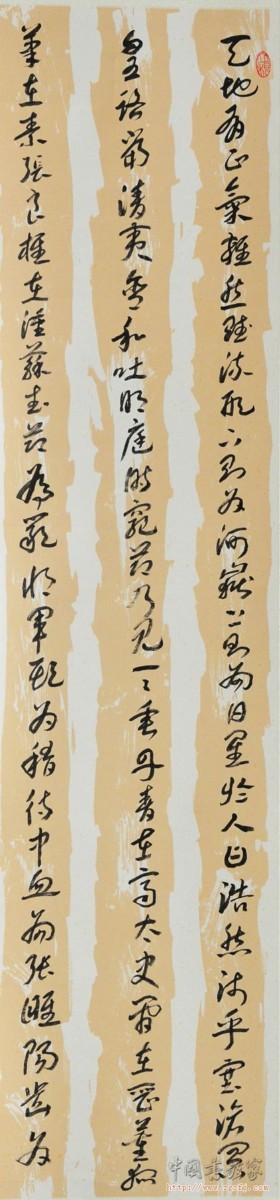 天地有正氣雜然賦流形下則為河嶽上則為日星於人曰浩然沛乎塞滄冥
皇路當清夷含和吐明庭時窮節乃見一々垂丹青在齊太史簡在晉董狐
筆在秦張良椎在漢蘇武節為嚴將軍頭為嵇侍中血為張睢陽齒為